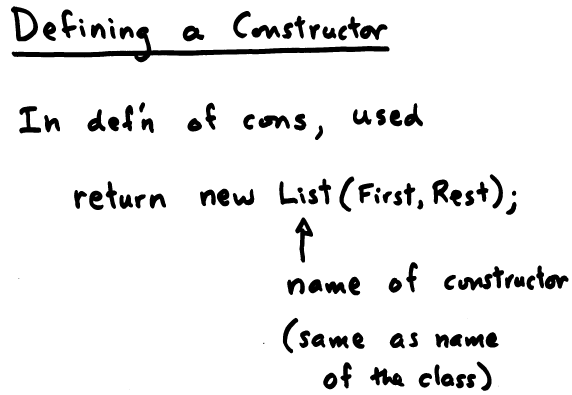 Defining a Constructor
In def'n of cons, used
return new List(First, Rest);
name of constructor
(same as name
of the class)